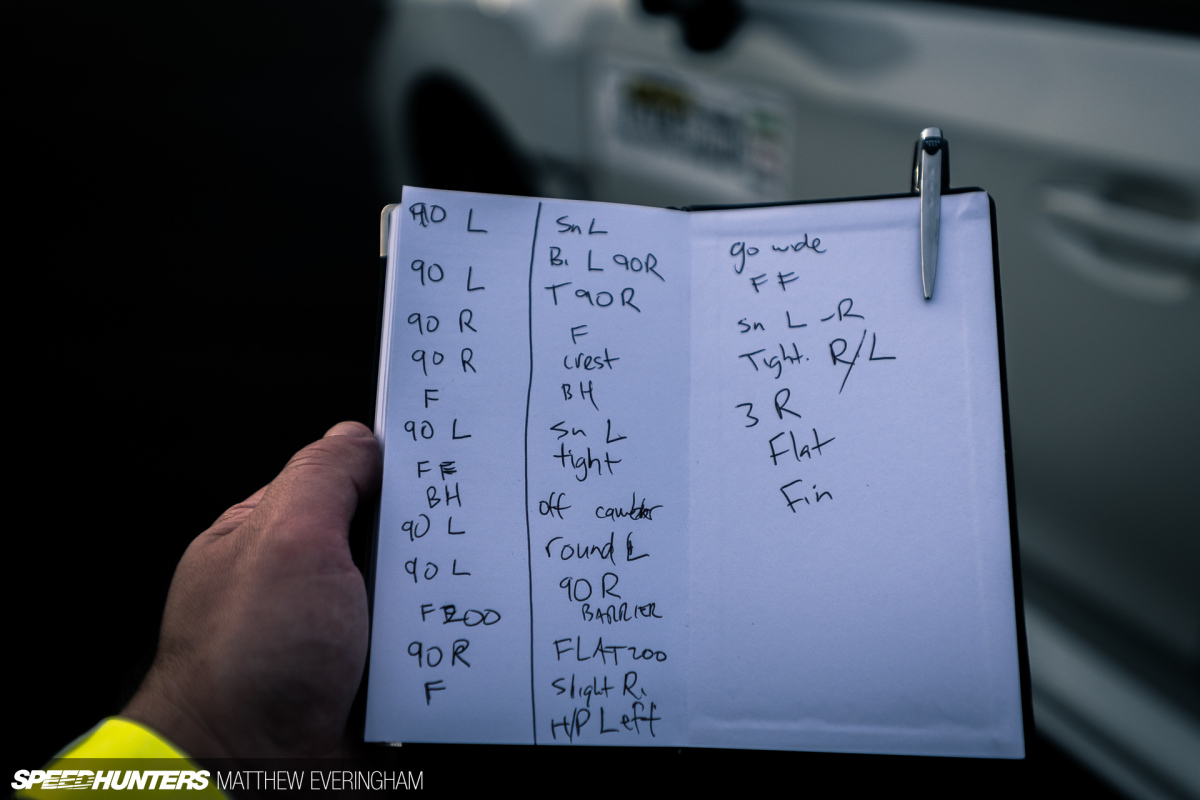 90 L
90 L
90 R
90 R
F
90 L
FF
BH
90 L
90 L
F 200
90 R
F
Sn L
Bi L 90R
T 90 R
F
crest
BH
Sn L
tight
off camber
round L
90 R
BARRIER
FLAT 200
Slight R.
H/P Left
go wide
F F
sn L - R
Tight. R/L
3 R
Flat
Fin
SPEEDHUNTERS MATTHEW EVERINGHAM